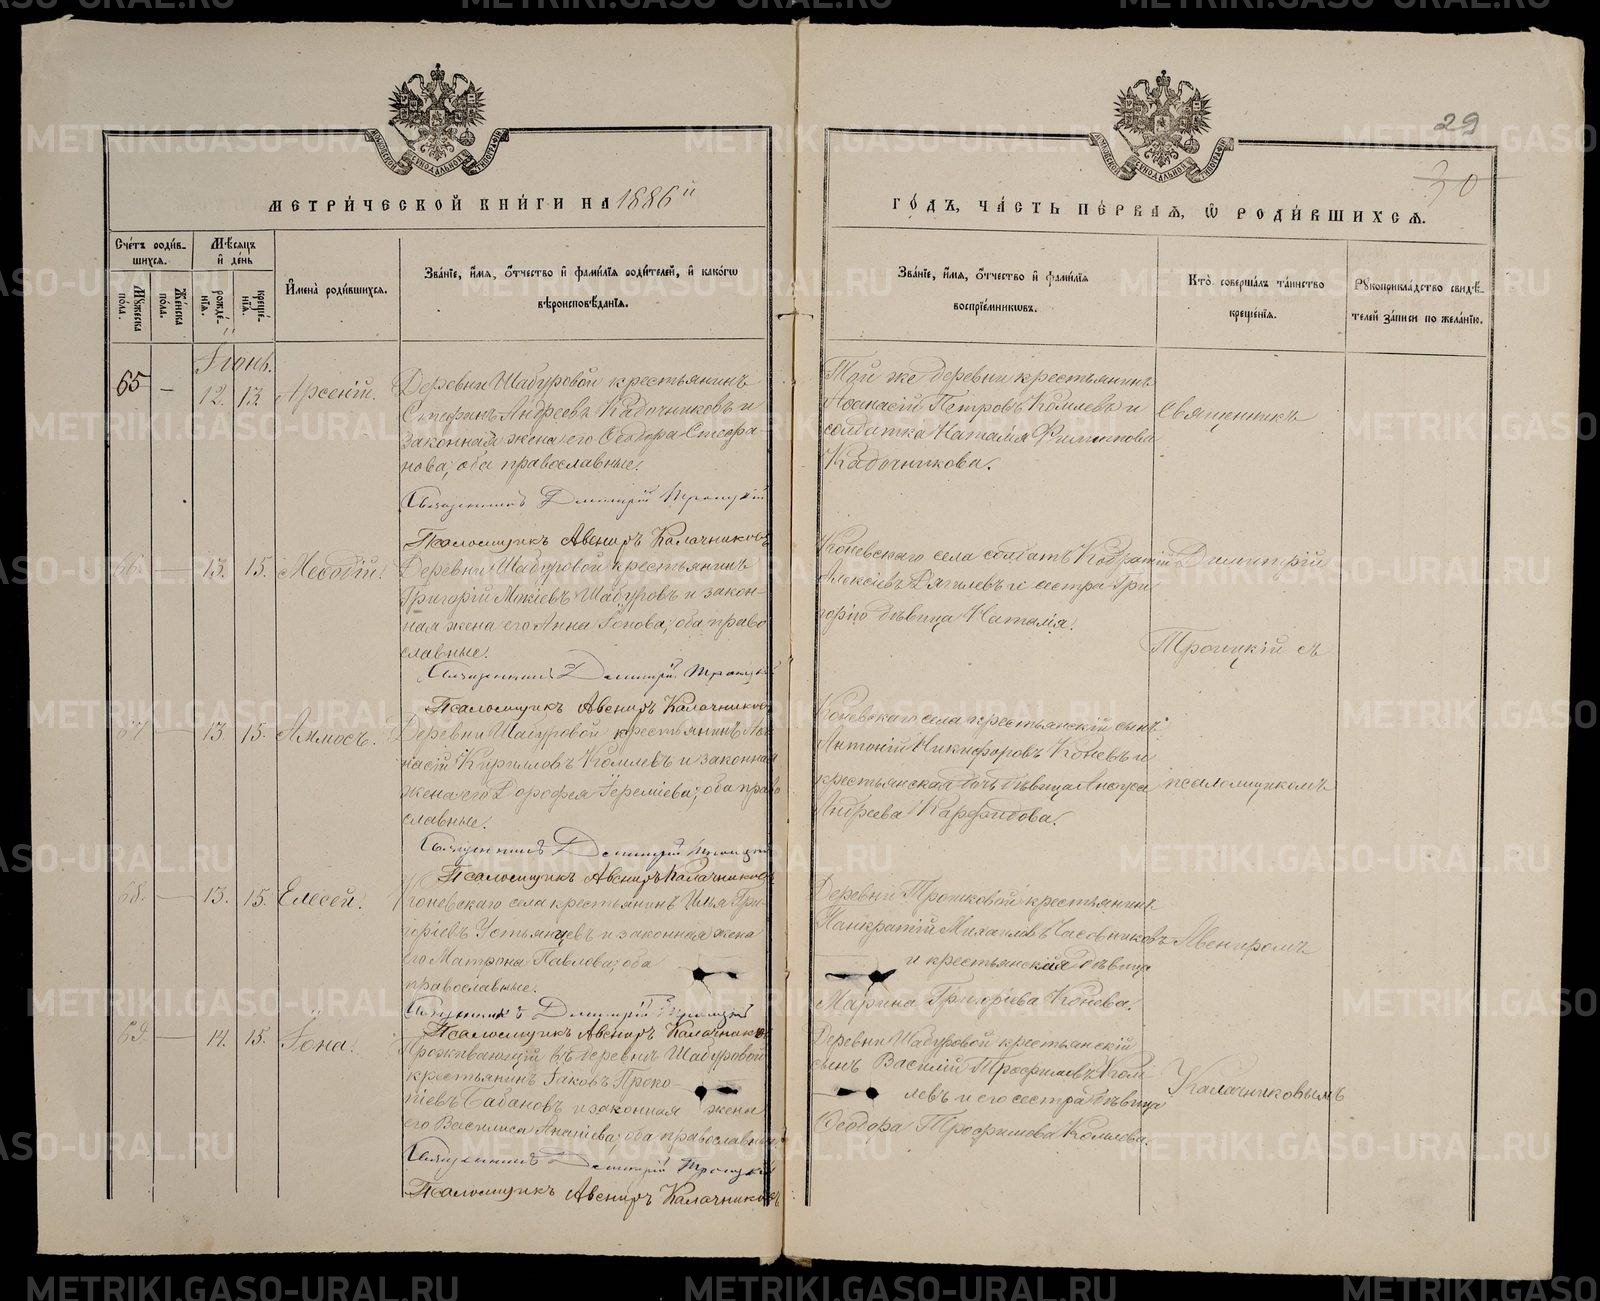 29
30
МЕТРИ́ЧЕСКОЙ КНИ́ГИ НА 1886й
ГО́ДЪ, ЧА́СТЬ ПЕ́РВАЯ, Ѡ РОДИ́ВШИХСЯ.
МОСКОВСКОЙ СѴНОДАЛЬНОЙ ТИПОГРАФІИ
МОСКОВСКОЙ СѴНОДАЛЬНОЙ ТИПОГРАФІИ
Сче́тъ роди́в-
шихся.
Мꙋ́жеска по́ла.
Же́нска по́ла.
Мѣ́сяцъ и де́нь
рожде́нїя.
креще́нїя.
И́мена̀ роди́вшихся.
Зва́нїе, и́мя, о́тчество и фами́лїя роди́телей, и како́гѡ
вѣроисповѣ́данїя.
Зва́нїе, и́мя, о́тчество и фами́лїя
воспрїе́мникѡвъ.
Кто̀ соверша́лъ та́инство
креще́нїя.
Рꙋкоприкла́дство свидѣ́-
телей за́писи по жела́нїю.
Іюнь.
65 — 12. 13. Арсеній.
Деревни Шабуровой крестьянинъ
Стефанъ Андреевъ Кадочниковъ и
законная жена его Ѳеодора Стефа-
нова; оба православные.
Священникъ Димитрій Троицкій
Псаломщикъ Авениръ Калачниковъ
Той же деревни крестьянинъ
Аѳанасій Петровъ Комлевъ и
солдатка Наталія Филиппова
Кадочникова.
Священникъ
66. — 13. 15. Меѳодій.
Деревни Шабуровой крестьянинъ
Григорій Мокіевъ Шабуровъ и закон-
ная жена его Анна Іонова; оба право
славные.
Священникъ Димитрій Троицкій
Псаломщикъ Авениръ Калачниковъ
Коневскаго села солдатъ Кодратій
Алексіевъ Дягилевъ и сестра Гри
горію дѣвица Наталія.
Димитрій
Троицкій съ
67. — 13. 15. Аммосъ.
Деревни Шабуровой крестьянинъ
насій Кирилловъ Комлевъ и законная
жена его Дорофея Іереміева; оба право
славные.
Священникъ Димитрій Троицкій
Псаломщикъ Авениръ Калачниковъ
Коневскаго села крестьянскій сынъ
Антоній Никифоровъ Коневъ и
крестьянская дочь дѣвица Анѳуса
Андреева Карфидова.
псаломщикомъ
68. — 13. 15. Елесей.
Коневскаго села крестьянинъ Илья Гри-
горіевъ Устьянцевъ и законная жена
его Матрона Павлова; оба
православные.
Священникъ Димитрій Троицкій
Псаломщикъ Авениръ Калачниковъ
Деревни Трошковой крестьянинъ
Панкратій Михаиловъ Часовниковъ
и крестьянская дѣвица
Марина Григоріева Конева.
Авениромъ
69. — 14. 15. Іона.
Проживающій въ деревни Шабуровой
крестьянинъ Іаковъ Проко-
піевъ Бабановъ и законная жена
его Василиса Ананіева; оба православные
Священникъ Димитрій Троицкій
Псаломщикъ Авениръ Калачниковъ
Деревни Шабуровой крестьянскій
сынъ Василій Трофимовъ Ком-
левъ и его сестра дѣвица
Ѳеодора Трофимова Комлева.
Калачниковымъ
METRIKI.GASO-URAL.RU